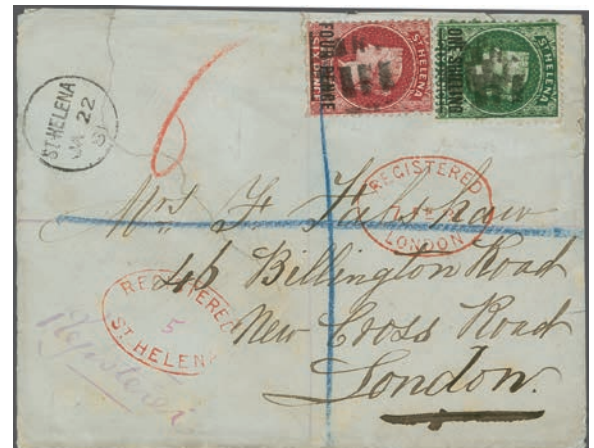 FOUR PENCE
SIX PENCE
ST HELENA
ONE SHILLING
ST HELENA
ST HELENA
JA 22
81
REGISTERED
LONDON
Mrs F. Fabshaw
46 Billington Road
New Cross Road
London.
REGISTERED
5
ST. HELENA
Registered